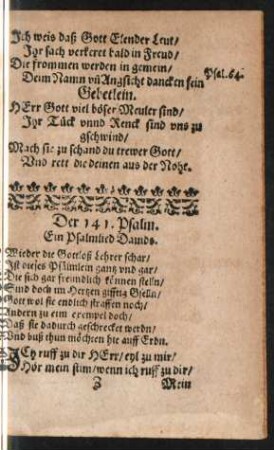 Ich weis daß Gott Elender Leut/
Ihr sach verkeret bald in Freud/
Die frommen werden in gemein/
Psal. 64.
Deim Namn vñ Angsicht dancken fein
Gebetlein.
HErr Gott viel böser Meuler sind/
Ihr Tück vnnd Renck sind vns zu
gschwind/
Mach sie zu schand du trewer Gott/
Vnd rett die deinen aus der Noht.
Der 141. Psalm.
Ein Psalmlied Dauids.
Wieder die Gottloß Lehrer schar/
Ist dieses Psälmlein gantz vnd gar/
Die sich gar freundlich können stelln/
Sind doch im Hertzen gifftig Gselln/
Gott wol sie endlich straffen noch/
Andern zu eim exempel doch/
Daß sie dadurch geschrecket werdn/
Vnd buß thun möchten hie auff Erdn.
ICh ruff zu dir HErr/ eyl zu mir/
Hör mein stim/ wenn ich ruff zu dir/
Z Mein